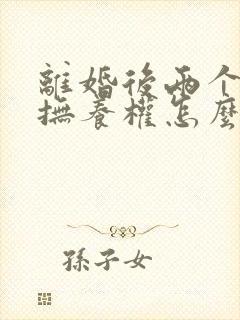 離婚後兩个
撫養權怎麼
孫子女